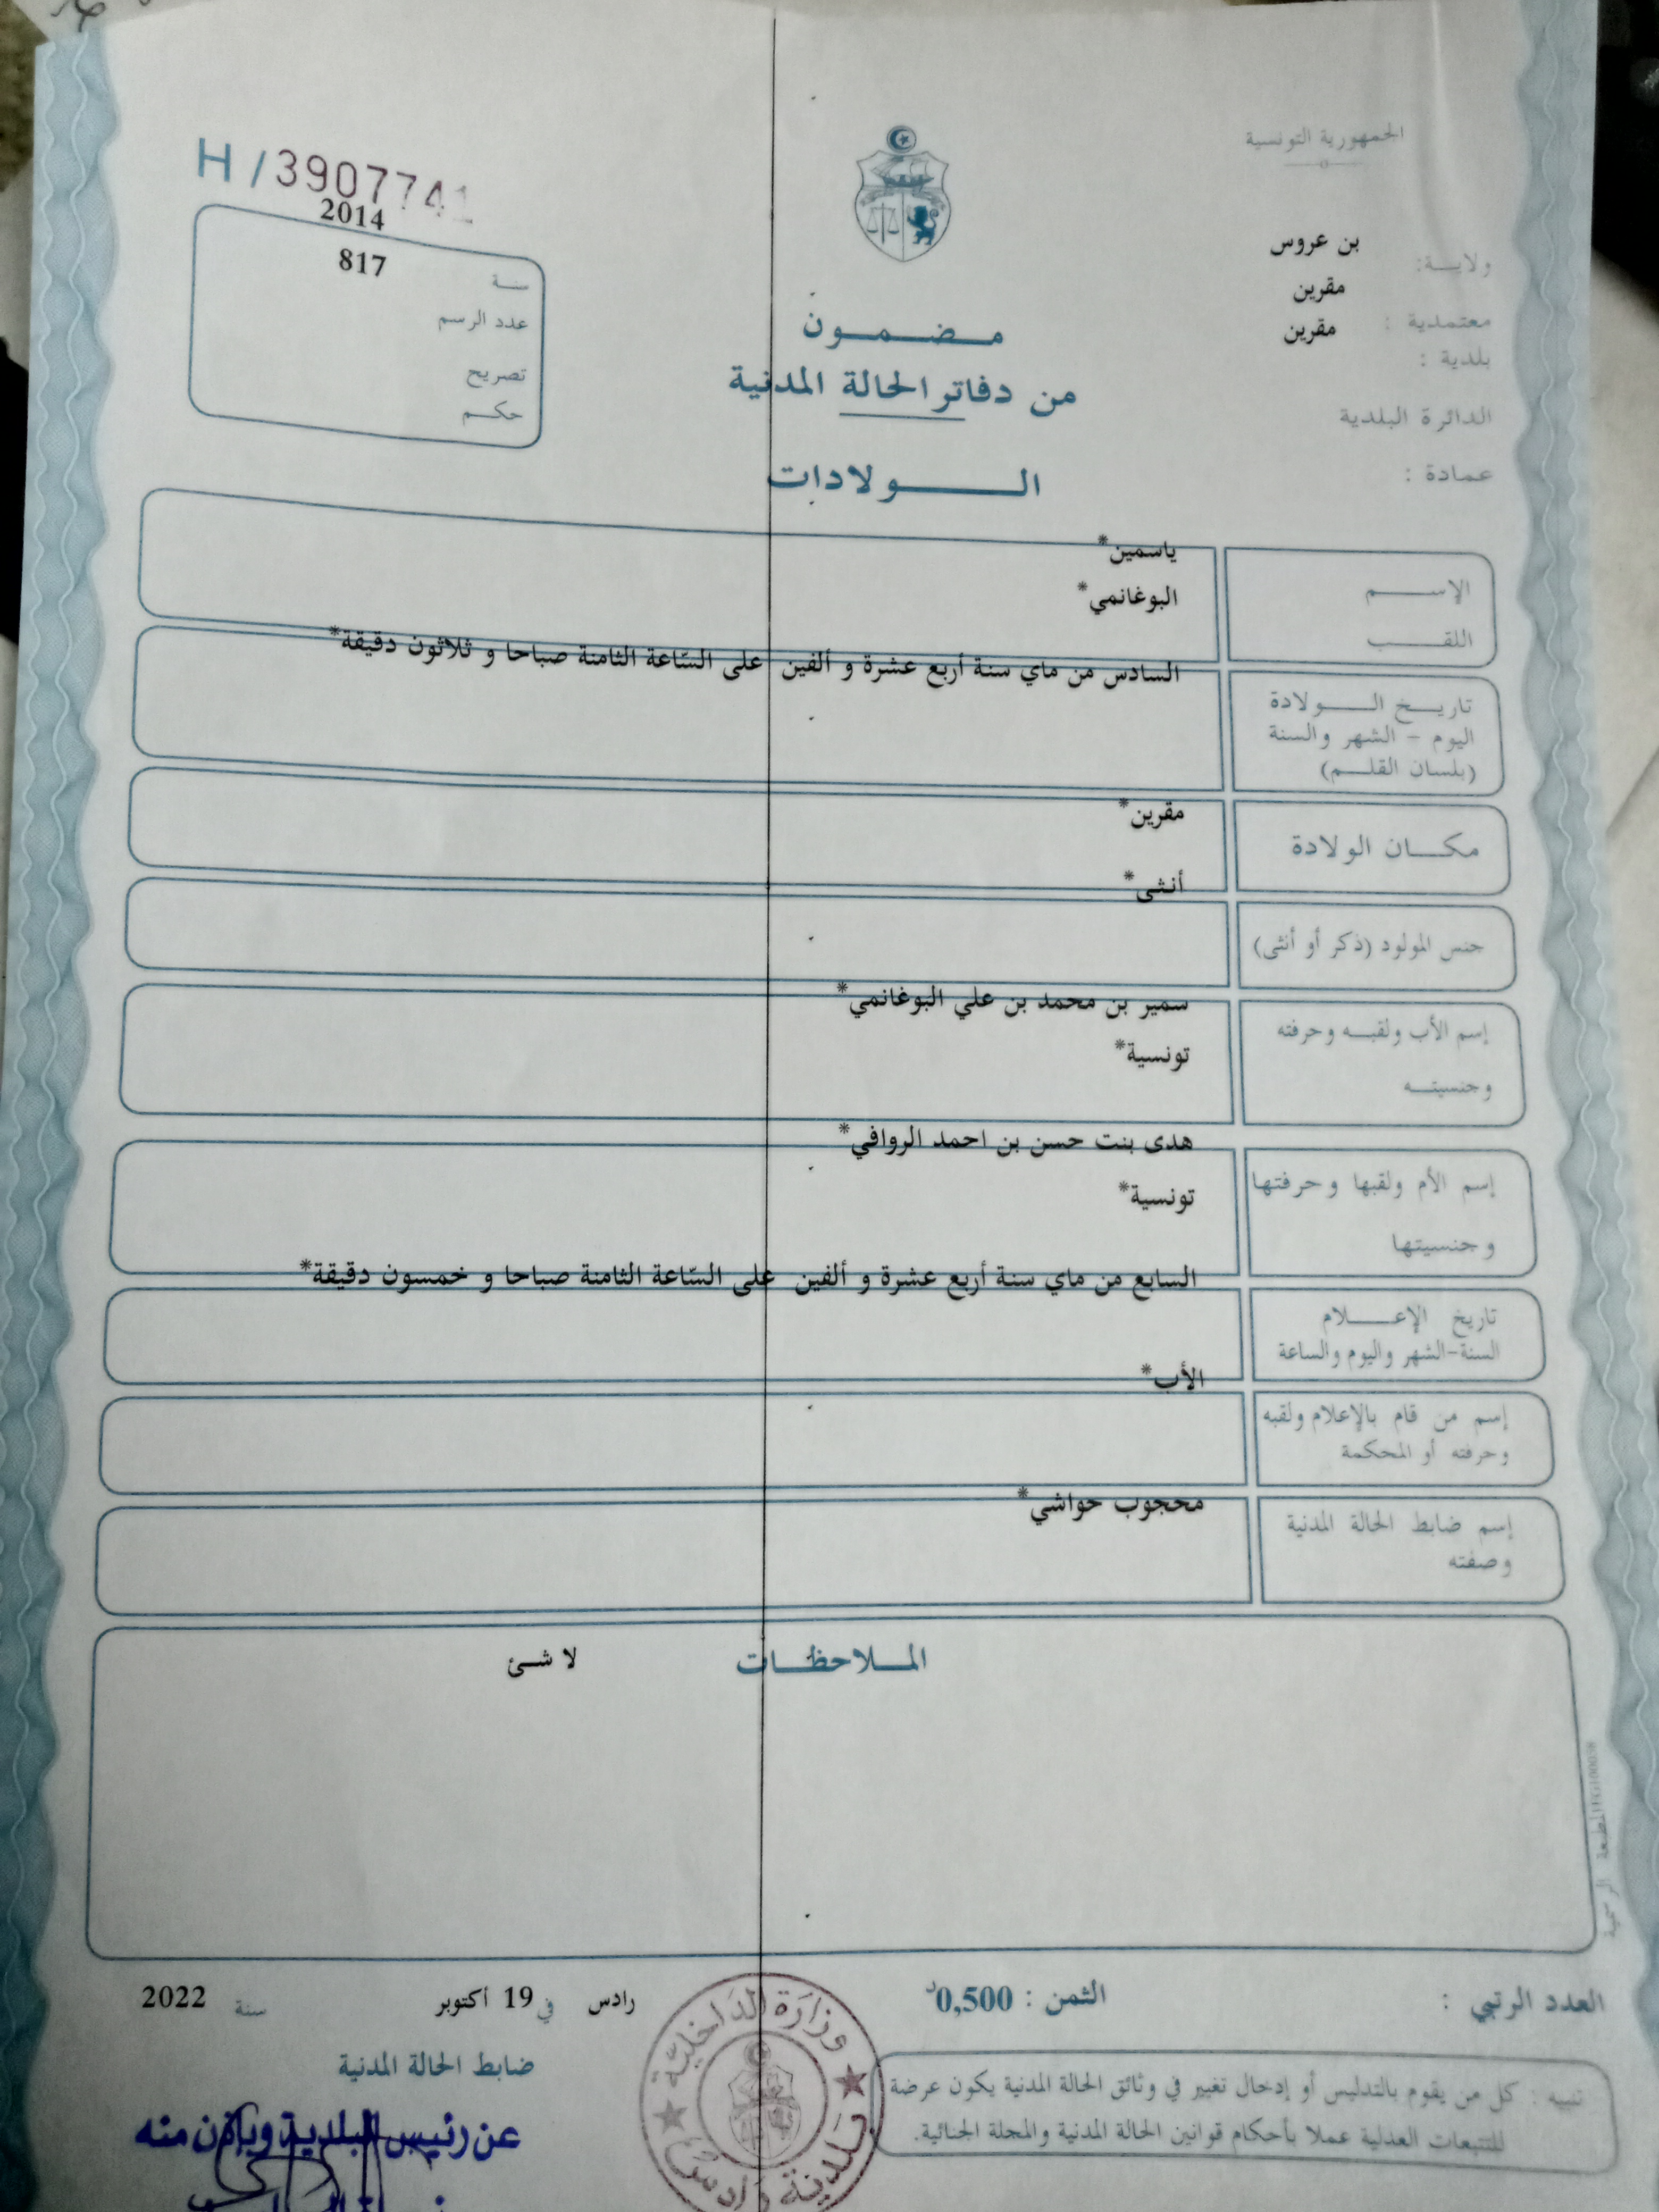 الجمهورية التونسية
H / 3907741
ولايـــة: بن عروس
معتمدية : مقرين
بلدية : مقرين
الدائرة البلدية
عمادة :
2014
817
سنــة
عدد الرسم
تصريح
حكــم
مـضـمـون
من دفاتر الحالة المدنية
الـــولادات
الإســـم
ياسمين*
اللقـــب
البوغانمي*
تاريـخ الـــولادة
اليوم - الشهر والسنة
(بلسان القلـــم)
السادس من ماي سنة أربع عشرة و ألفين على السّاعة الثامنة صباحا و ثلاثون دقيقة*
مكـــان الولادة
مقرين*
جنس المولود (ذكر أو أنثى)
أنثى*
إسم الأب ولقبـــه وحرفته
وجنسيتـــه
سمير بن محمد بن علي البوغانمي*
تونسية*
إسم الأم ولقبها وحرفتها
وجنسيتها
هدى بنت حسن بن احمد الروافي*
تونسية*
تاريخ الإعـــلام
السنة-الشهر واليوم والساعة
السابع من ماي سنة أربع عشرة و ألفين على السّاعة الثامنة صباحا و خمسون دقيقة*
إسم من قام بالإعلام ولقبه
وحرفته أو المحكمة
الأب*
إسم ضابط الحالة المدنية
وصفته
محجوب حواشي*
المـــلاحظـــات
لا شئ
المطبعة الرسمية
العدد الرتبي :
الثمن : 0,500د
رادس في 19 أكتوبر سنة 2022
ضابط الحالة المدنية
عن رئيس البلدية وبإذن منه
وزارة الداخلية
بلدية رادس
تنبيه : كل من يقوم بالتدليس أو إدخال تغيير في وثائق الحالة المدنية يكون عرضة
للتتبعات العدلية عملا بأحكام قوانين الحالة المدنية والمجلة الجنائية.